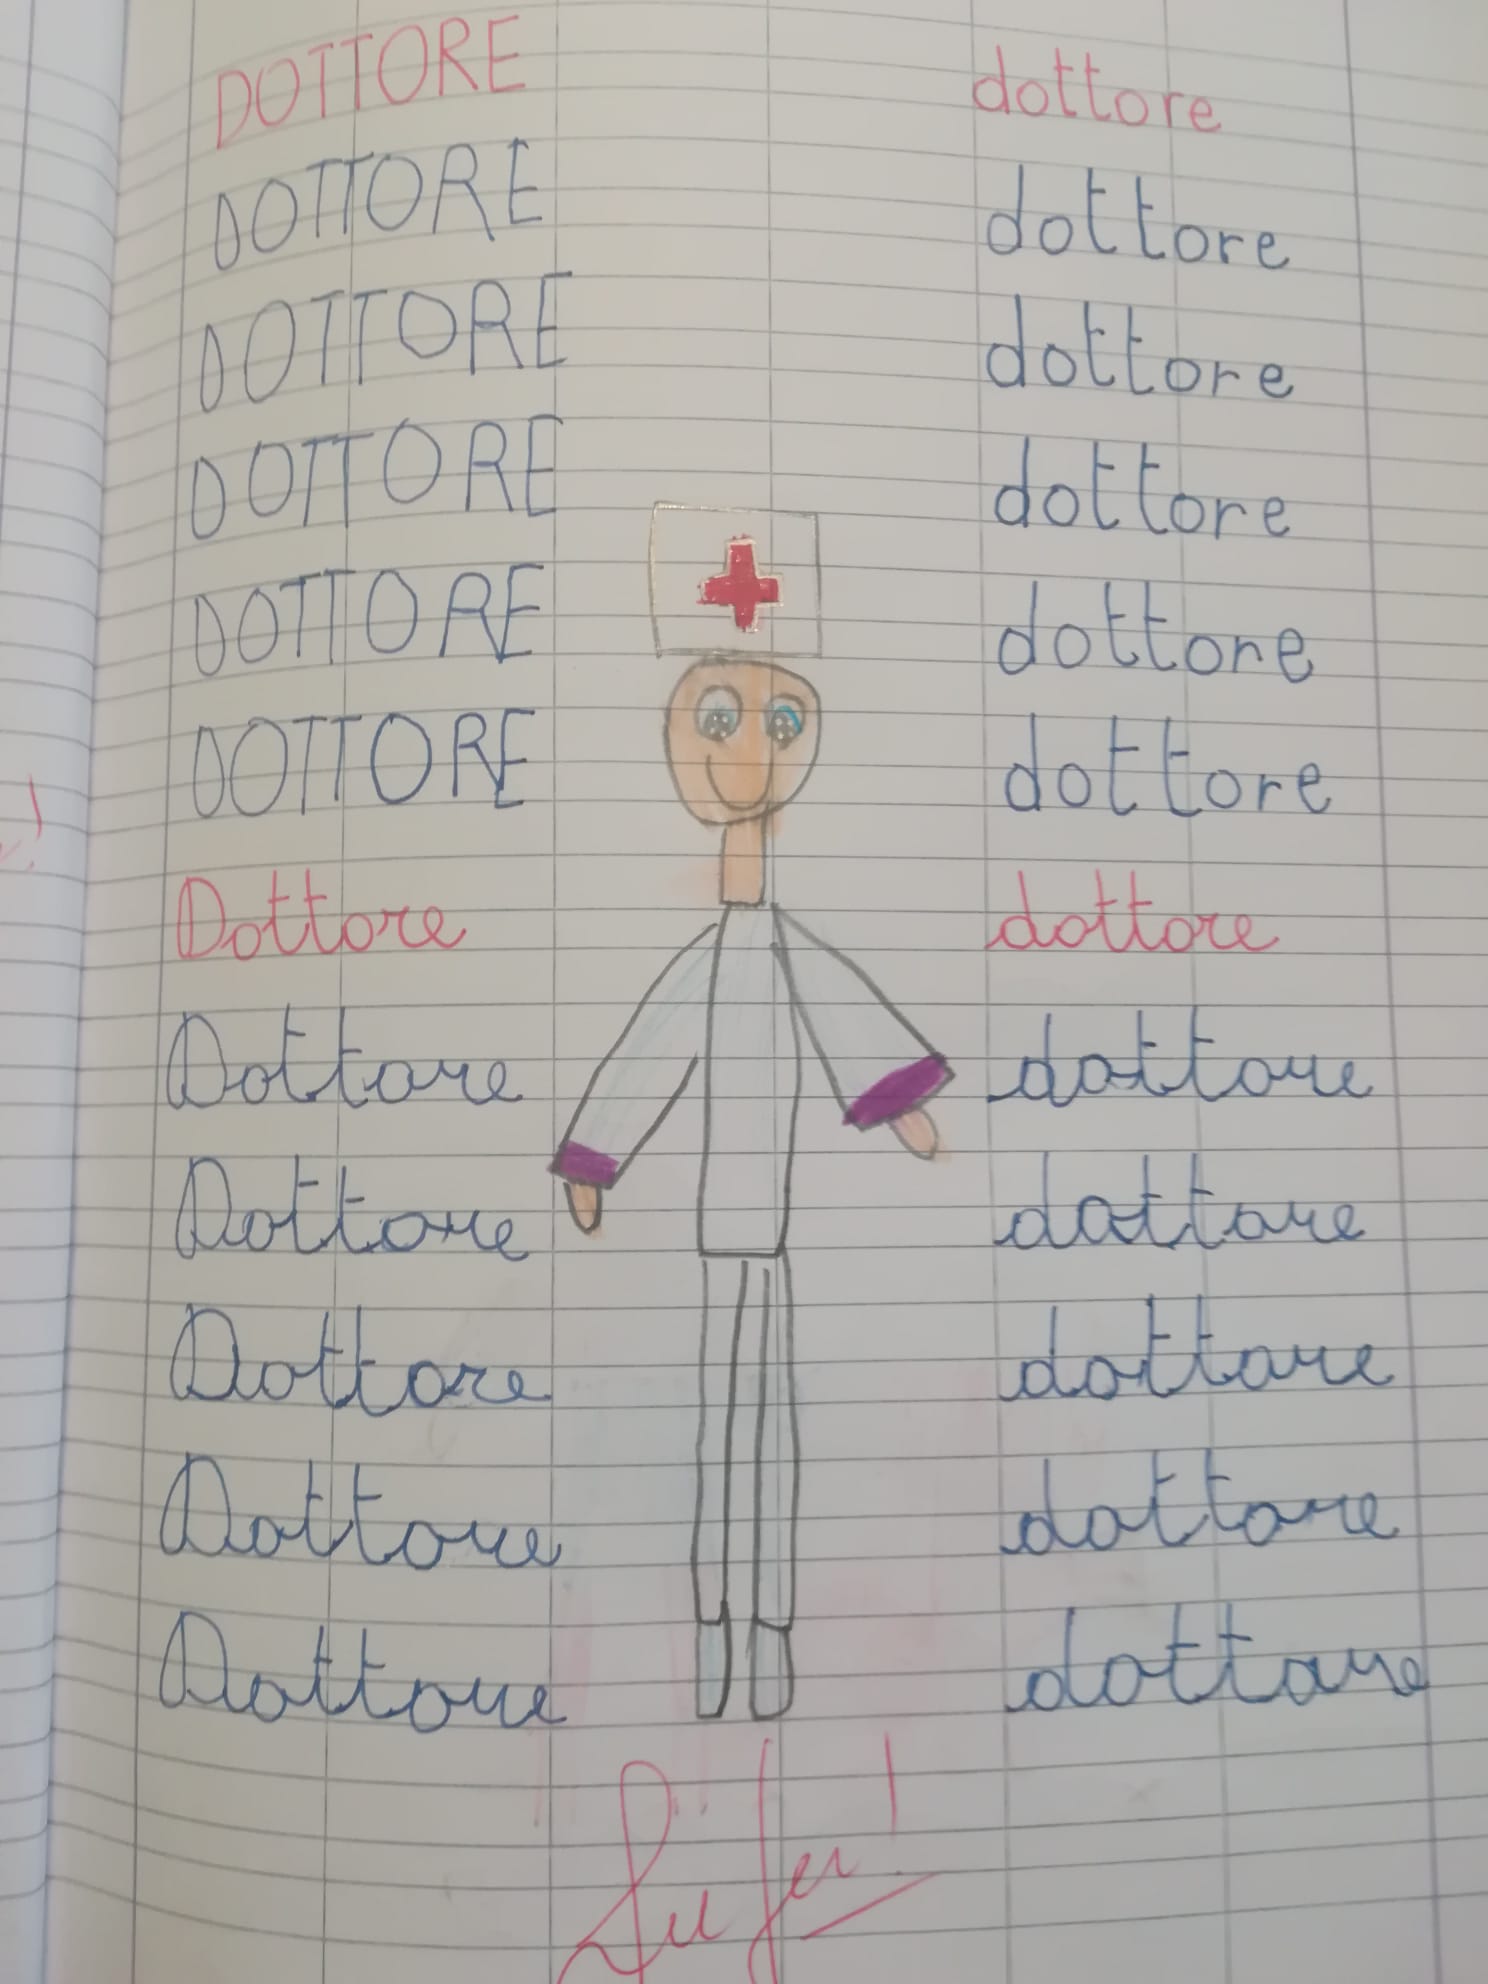 DOTTORE dottore
DOTTORE dottore
DOTTORE dottore
DOTTORE dottore
DOTTORE dottore
DOTTORE dottore
Dottore dottore
Dottore dottore
Dottore dottore
Dottore dottore
Dottore dottore
Dottore dottore